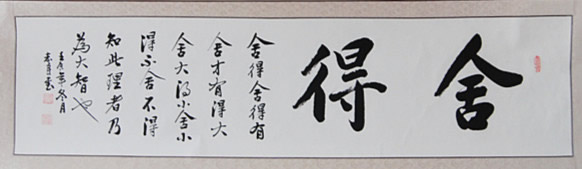 舍得
舍得舍得有
舍才有得大
舍大得小舍小
得不舍不得
知此理者乃
為大智也
年冬月